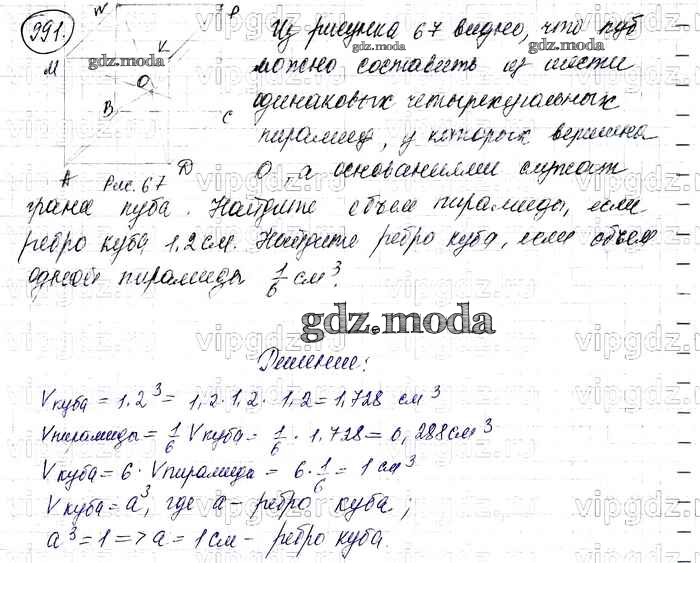 991.
N
P
Из рисунка 67 видно, что куб
M
K
можно составить из шести
O
одинаковых четырехугольных
B
C
пирамид, у которых вершина
O, а основаниями служат
A
D
Рис. 67
грани куба. Найдите объем пирамиды, если
ребро куба 1,2 см. Найдите ребро куба, если объем
одной пирамиды 1/6 см³.
gdz.moda
Решение:
Vкуба = 1.2³ = 1,2 · 1,2 · 1,2 = 1,728 см³
Vпирамиды = 1/6 Vкуба = 1/6 · 1,728 = 0,288 см³
Vкуба = 6 · Vпирамида = 6 · 1/6 = 1 см³
Vкуба = a³, где a – ребро куба;
a³ = 1 => a = 1 см – ребро куба.